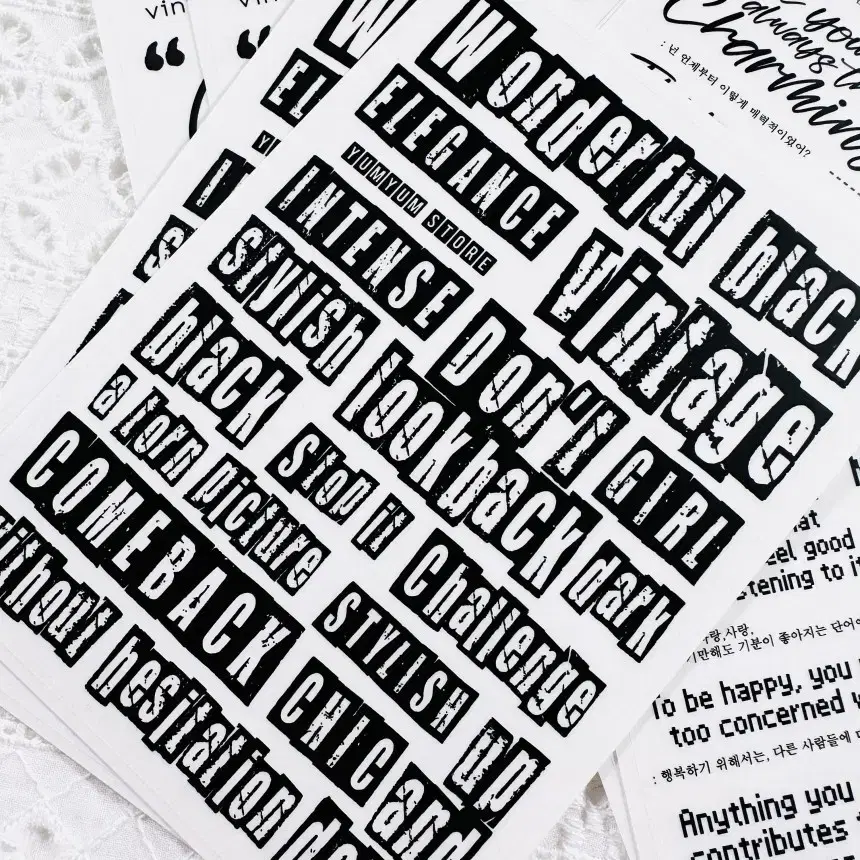 Wonderful
ELEGANCE
black
YUMYUM STORE
INTENSE
Vintage
stylish
Don't
GIRL
black
lookback
dark
a torn picture
stop it
Challenge
COMEBACK
STYLISH
up
without hesitation
CHIC
and
W
EL
vin
“
“
you
always
Charming
: 넌 언제부터 이렇게 매력적이었어?
feel good
listening to it
사랑,사랑.
기만해도 기분이 좋아지는 단어
To be happy, you
too concerned
: 행복하기 위해서는, 다른 사람들에
Anything you
contributes